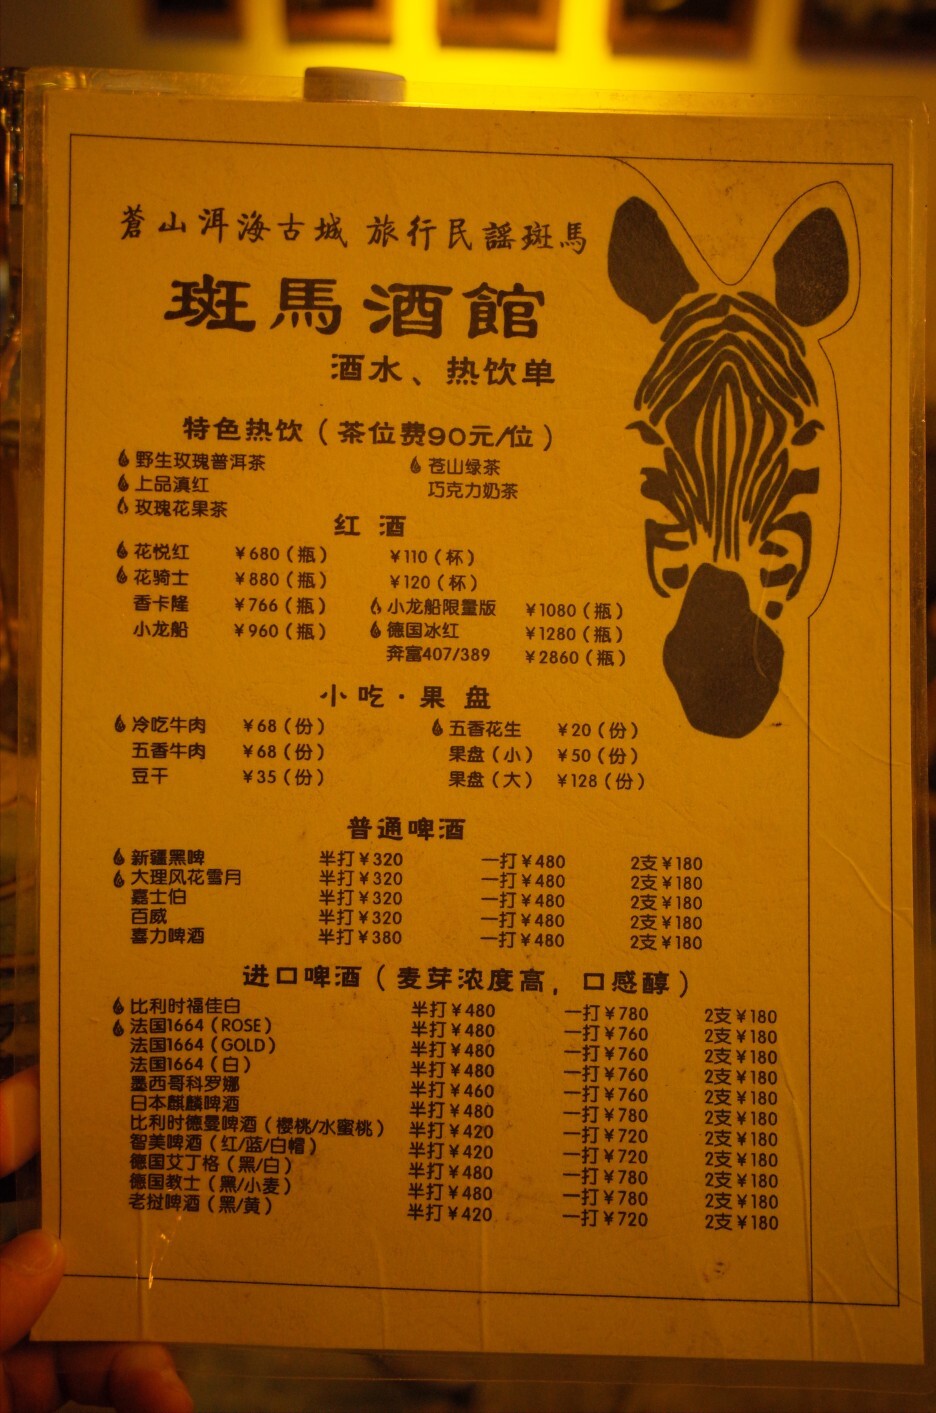 蒼山洱海古城 旅行民謡斑馬
斑馬酒館
酒水、热饮单
特色热饮（茶位费90元/位）
野生玫瑰普洱茶 苍山绿茶
上品滇红 巧克力奶茶
玫瑰花果茶
红 酒
花悦红 ¥680（瓶） ¥110（杯）
花骑士 ¥880（瓶） ¥120（杯）
香卡隆 ¥766（瓶） 小龙船限量版 ¥1080（瓶）
小龙船 ¥960（瓶） 德国冰红 ¥1280（瓶）
奔富407/389 ¥2860（瓶）
小吃·果 盘
冷吃牛肉 ¥68（份） 五香花生 ¥20（份）
五香牛肉 ¥68（份） 果盘（小） ¥50（份）
豆干 ¥35（份） 果盘（大） ¥128（份）
普通啤酒
新疆黑啤 半打¥320 一打¥480 2支¥180
大理风花雪月 半打¥320 一打¥480 2支¥180
嘉士伯 半打¥320 一打¥480 2支¥180
百威 半打¥320 一打¥480 2支¥180
喜力啤酒 半打¥380 一打¥480 2支¥180
进口啤酒（麦芽浓度高，口感醇）
比利时福佳白 半打¥480 一打¥780 2支¥180
法国1664（ROSE） 半打¥480 一打¥760 2支¥180
法国1664（GOLD） 半打¥480 一打¥760 2支¥180
法国1664（白） 半打¥480 一打¥760 2支¥180
墨西哥科罗娜 半打¥460 一打¥760 2支¥180
日本麒麟啤酒 半打¥480 一打¥780 2支¥180
比利时德曼啤酒（樱桃/水蜜桃） 半打¥420 一打¥720 2支¥180
智美啤酒（红/蓝/白帽） 半打¥420 一打¥720 2支¥180
德国艾丁格（黑/白） 半打¥480 一打¥780 2支¥180
德国教士（黑/小麦） 半打¥480 一打¥780 2支¥180
老挝啤酒（黑/黄） 半打¥420 一打¥720 2支¥180